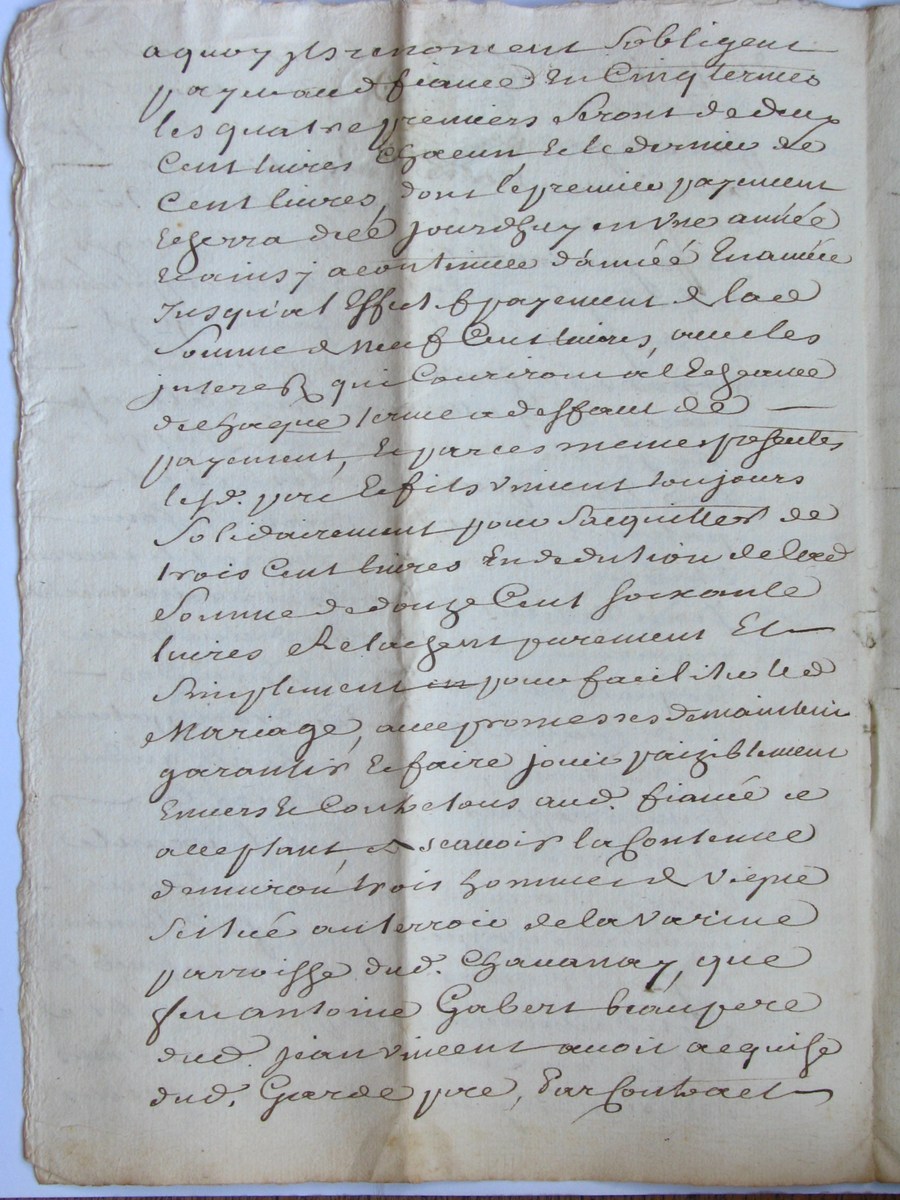 a quoy ils renoncent sobligent
payer aud fiancé En Cinq termes
les quatre premiers seront de deux
Cent livres Chacun & le dernier de
Cent livres, dont le premier payement
Echerra dicé jourdhuy en une année
& ainsy a continuer dannéé En année
Jusqua l'Effectif payement de lad
Somme de neuf Cent livres, avec les
jnterest qui Couriront a l'Echeance
de chaque terme a deffaut de
payement, & par ces memes presentes
lesd. pere & fils vincent toujours
Solidairement pour sacquitter de
trois Cent livres En deduction de lad
Somme de douze Cent soixante
livres Relachent purement Et
Simplement pour faciliter led
Mariage, avec promesses de maintenir
garantir & faire jouir paiziblement
Envers & Contre tous aud. fiancé ce
acceptant, scavoir la Contenue
denviron trois hommées de vigne
Située au terroir de la varine
parroisse dud. Chavanay, que
feu antoine Gabert beaupere
dud. jean vincent avoit acquise
dud. Garde pere, Par Contract